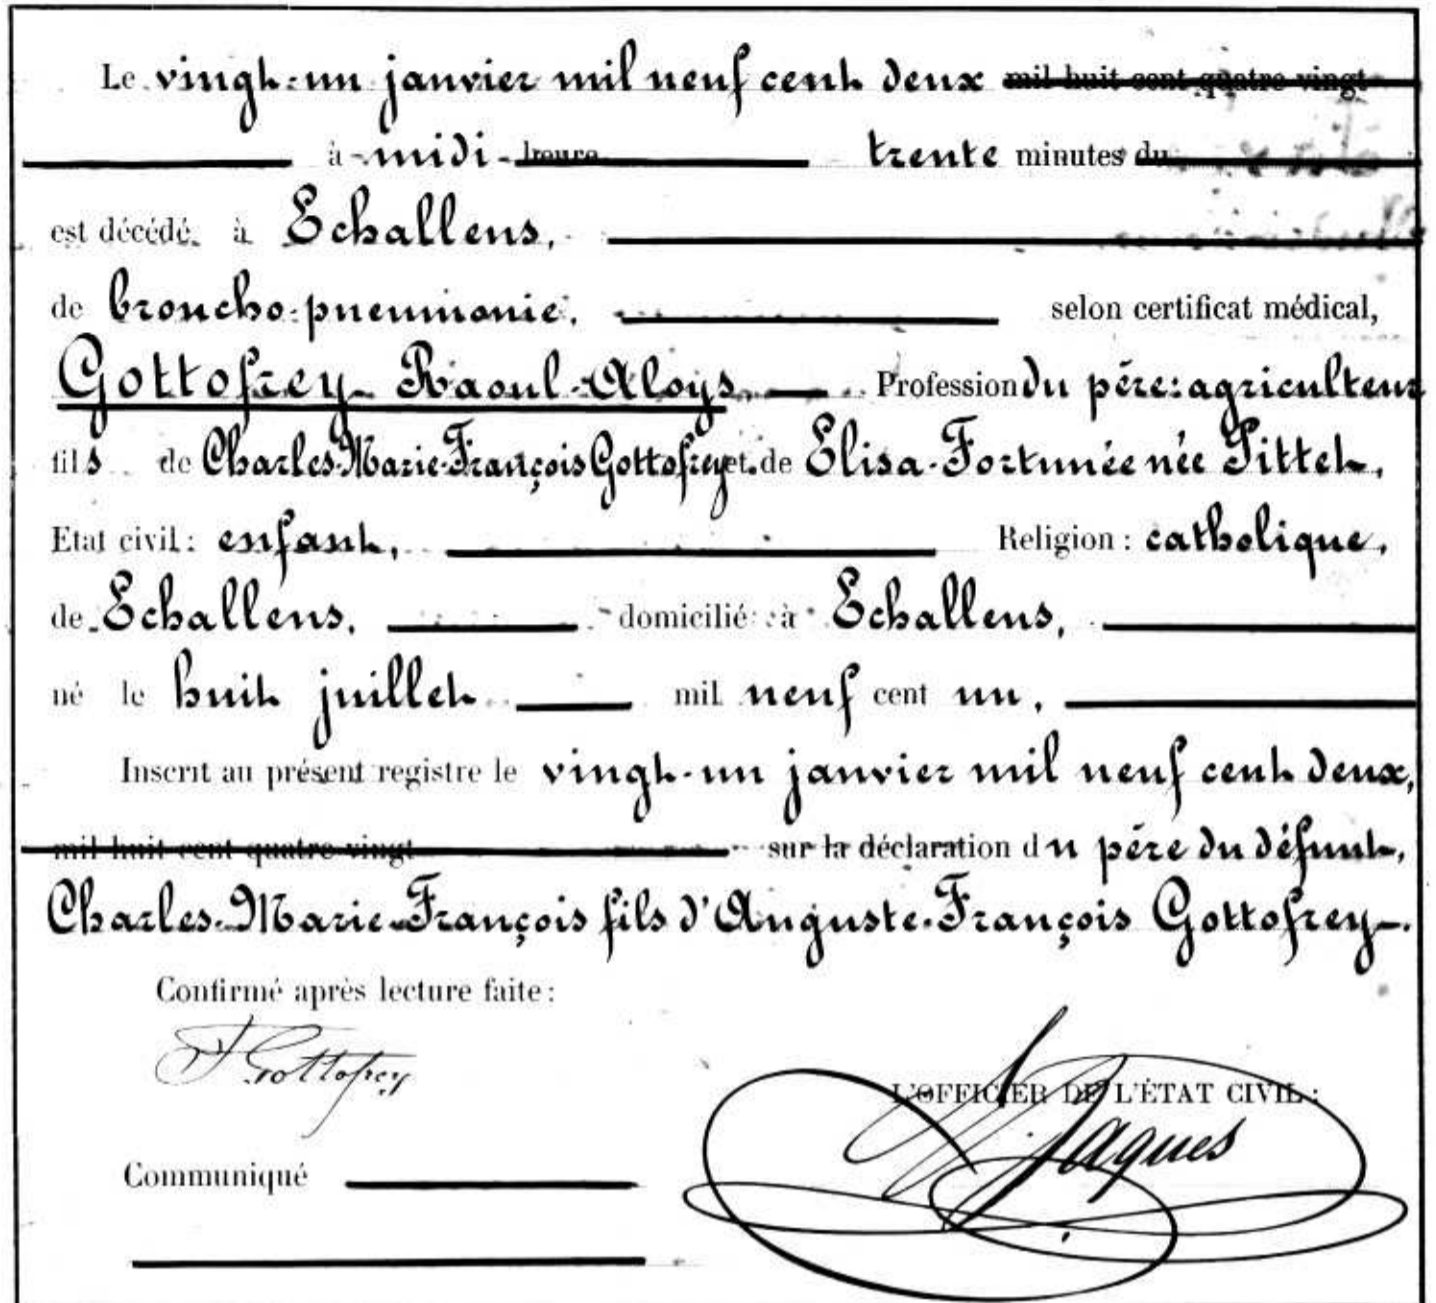 Le vingt-un janvier mil neuf cent deux mil huit cent quatre vingt
à midi heure trente minutes du
est décédé à Echallens,
de broncho-pneumonie, selon certificat médical,
Gottofrey Raoul-Aloys Profession du père: agriculteur
fils de Charles-Marie-François Gottofrey et de Elisa-Fortunée née Pittet,
Etat civil: enfant, Religion: catholique,
de Echallens, domicilié à Echallens,
né le huit juillet mil neuf cent un,
Inscrit au présent registre le vingt-un janvier mil neuf cent deux,
mil huit cent quatre vingt sur la déclaration du père du défunt,
Charles-Marie-François fils d'Auguste-François Gottofrey.
Confirmé après lecture faite:
Gottofrey
L'OFFICIER DE L'ÉTAT CIVIL:
Jaques
Communiqué